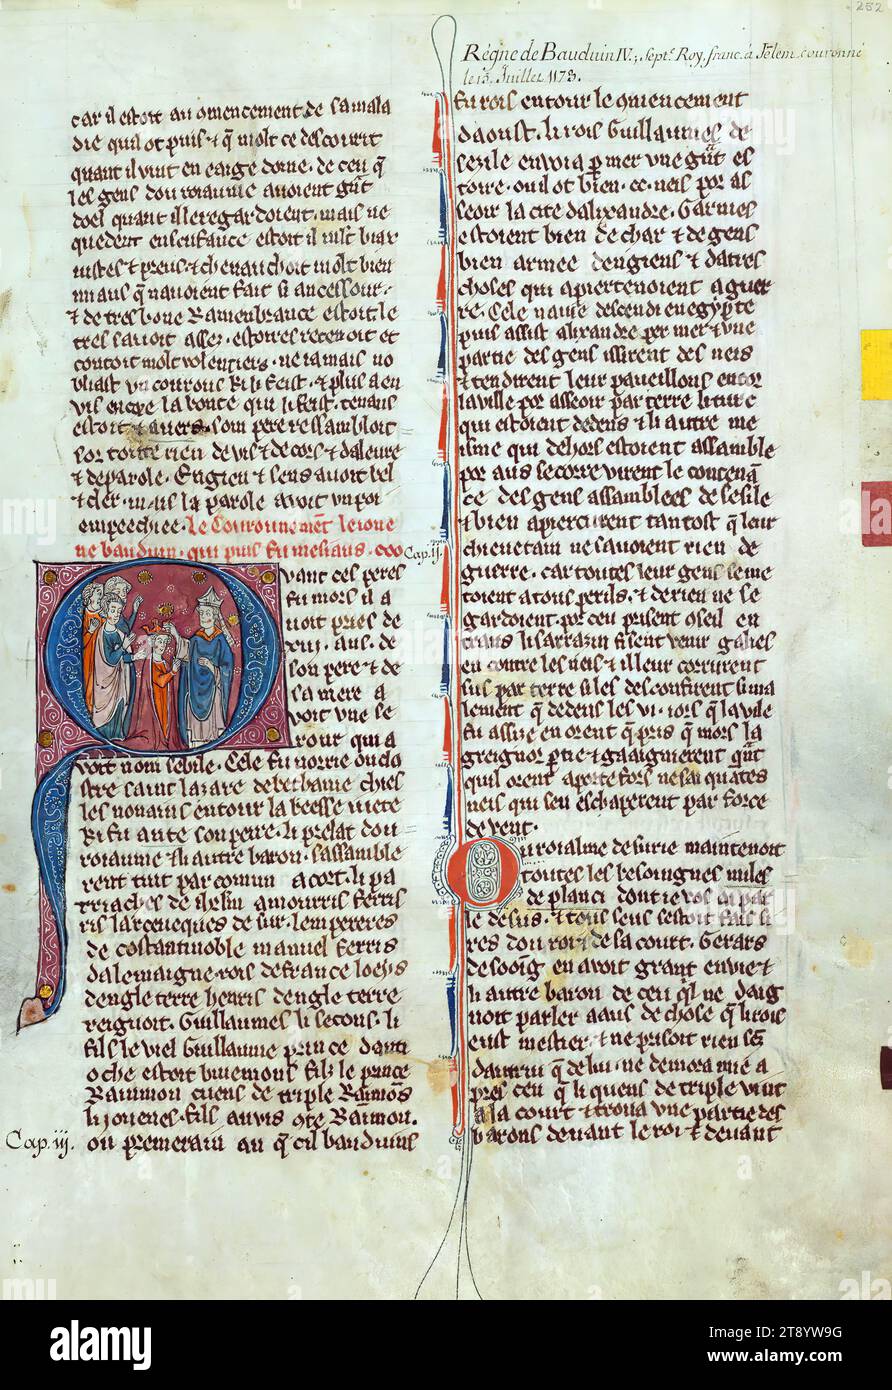 252
Règne de Bauduin IV.; Sept.e Roy, franc. à Jèlem couronné
le 15. Juillet 1173.
car il estoit au omencement de sa mala
die quil ot puis et q̃ molt ce descourit
quant il vint en eaige dome. de ceu q̃
les gens dou roiaume auoient gr̃t
doel quant il le regardoient. mais ne
quedent en senfance estoit il mlt biax
iustes et preus. et cheuauchoit molt bien
mi aus q̃ nauoient fait si ancessour.
et de tres bone Ramenbrance estoit. le
tres sauoit assez. estoires retenoit et
contoit molt volentiers. ne iamais no
bliast vn courous ki li feist. et plus a en
vis encore la bonte qui li feist. tenans
estoit et auers. som pere ressambloit
sor toute rien de vis et de cors et daleure
et de parole. Engieu et sens auoit bel
et cler. mais la parole auoit vn poi
empeechiee. Le Couronnemẽt le ione
ne bauduin. qui puis fu mesiaus. coo
Cap. ij.
vant ces peres
fu mors il a
uoit pres de
xiij. ans. de
son pere et de
sa mere a
voit vne se
rour qui a
voit nom sebile. Cele fu norrie ou do
stre saint lazare de bethanie chies
les nonains entour la beesse iuete
ki fu ante son pere. li prelat dou
roiaume et li autre baron. sassamble
rent tuit par comun acort. li pa
triaches de ih̃lm amourris ferris
ris larceueques de sur. lempereres
de costantinoble manuel ferris
dalemaigne. rois de france loeys
dengleterre henris dengleterre
reignoit. Guillaumes li secons. li
fils le viel Guillaume prince danti
oche estoit buiemons filz le prince
Raimmon cuens de triple Raimõs
li iouenes. fils anvis ote Raimon.
Cap. iij.
ou premerain an q̃ cil bauduins
fu rois entour le cõmencement
daoust. li rois Guillaumes de
sezile envoia p mer vne gr̃t es
toire. ou il ot bien .cc. neis por as
seoir la cite dalixandre. Garnies
estoient bien de char et de gens
bien armee dengiens et dautres
choses qui apiertenoient a guer
re. Cele nauie descendi en egypte
puis assist alixandre per mer et vne
partie des gens issirent des neis
et tendirent leur paueillons entor
la ville por asseoir par terre. li turc
qui estoient dedens et li autre me
isme qui dehors estoient assamble
por aus secorre virent le contenã
ce des gens assamblees de sesile
et bien apiercurent tantost q̃ leur
chieuetain ne sauoient rien de
guerre. car toutes leur gens seme
toient a tous perils. et de rien ne se
gardoient. por ceu prisent oseil en
traus li sarrazin fisent venir galies
en contre les neis et il leur corrurent
sus par terre si les desconfirent si ma
lement q̃ dedens les .vi. iors q̃ la vile
fu assiie en orent q̃ pris q̃ mors la
greignor ptie et gaaignierent q̃nt
quil orent aporte fors ne sai quates
neis qui sen eschaperent par force
de vent.
Ou roialme de surie maintenoit
toutes les besoingnes miles
de planci dont ie vos ai par
le desus. et tous seus sestoit fais si
res dou roi et de sa court. Gerars
de sooig̃ en avoit grant envie et
li autre baron de ceu q̃l ne daig
noit parler a aus de chose q̃ li rois
eust mestier. et ne prisoit rien sẽs
dautrui q̃ de lui. ne demora mie a
pres ceu q̃ li quens de triple vint
a la court et troua vne partie des
barons deuant le roi et deuant